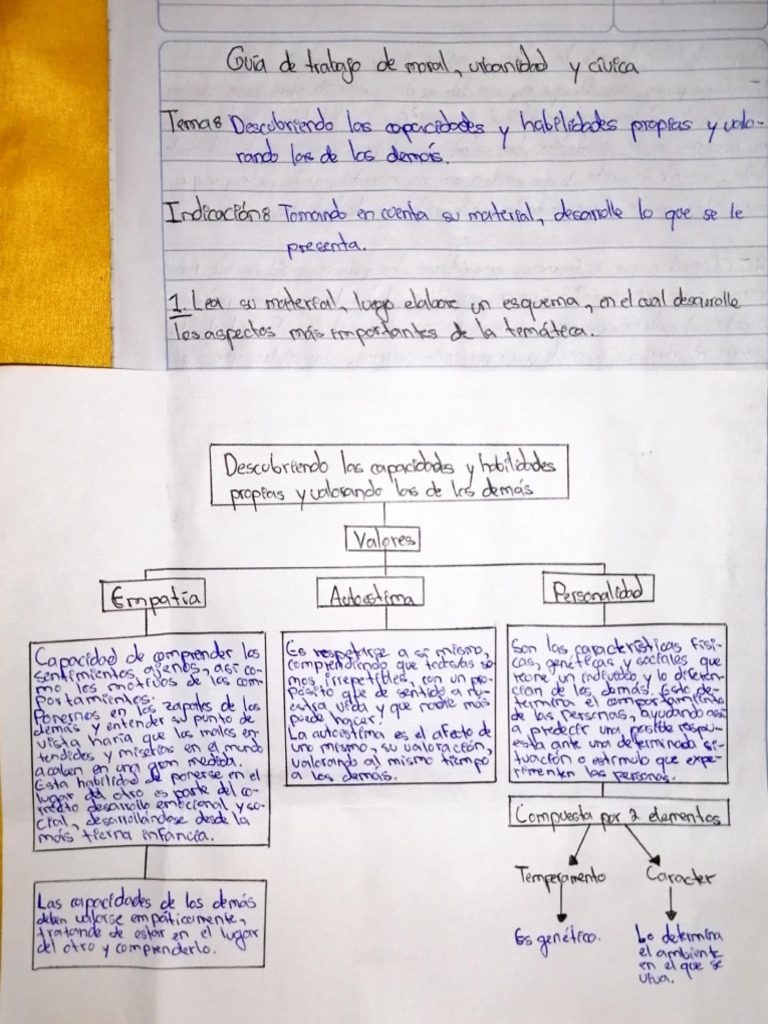 Guía de trabajo de moral, urbanidad y cívica
Tema: Descubriendo las capacidades y habilidades propias y valo-
rando las de los demás.
Indicación: Tomando en cuenta su material, desarrolle lo que se le
presenta.
1. Lea su material, luego elabore un esquema, en el cual desarrolle
los aspectos más importantes de la temática.
Descubriendo las capacidades y habilidades
propias y valorando las de los demás
Valores
Empatía
Capacidad de comprender los
sentimientos ajenos, así co-
mo los motivos de los com-
portamientos.
Ponernos en los zapatos de los
demás y entender su punto de
vista haría que los males en-
tendidos y miserias en el mundo
acaben en una gran medida.
Esta habilidad de ponerse en el
lugar del otro es parte del co-
rrecto desarrollo emocional y so-
cial, desarrollándose desde la
más tierna infancia.
Las capacidades de los demás
deben valorse empáticamente,
tratando de estar en el lugar
del otro y comprenderlo.
Autoestima
Es respetarse a sí mismo,
comprendiendo que todos/as so-
mos irrepetibles, con un pro-
pósito que de sentido a nu-
estra vida y que nadie más
puede hacer.
La autoestima es el afecto de
uno mismo, su valoración,
valorando al mismo tiempo
a los demás.
Personalidad
Son las características físi-
cas, genéticas y sociales que
reúne un individuo y lo diferen-
cian de los demás. Esto de-
termina el comportamiento
de las personas, ayudando así
a predecir una posible respu-
esta ante una determinada si-
tuación o estímulo que expe-
rimenten las personas.
Compuesta por 2 elementos
Temperamento
Es genético.
Caracter
Lo determina
el ambiente
en el que se
viva.